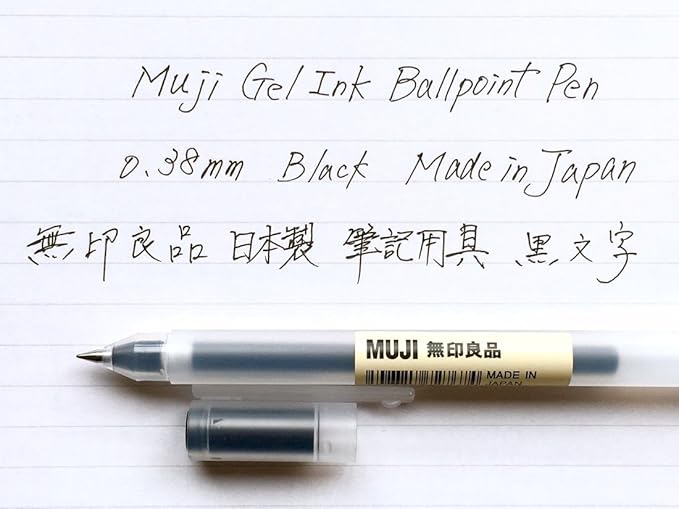 Muji Gel Ink Ballpoint Pen
0.38mm Black Made in Japan
無印良品 日本製 筆記用具 黒文字
MUJI 無印良品
MADE IN
JAPAN